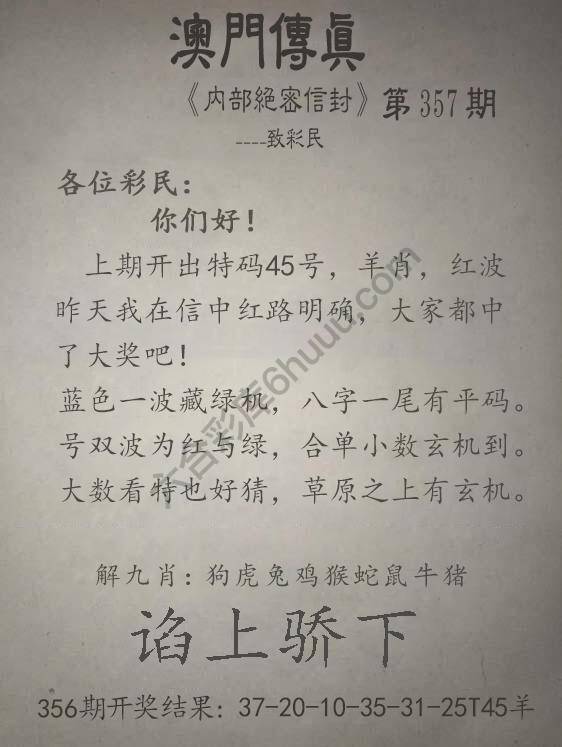 澳門傳眞
《内部絕密信封》第357期
----致彩民
各位彩民：
你们好！
上期开出特码45号，羊肖，红波
昨天我在信中红路明确，大家都中
了大奖吧！
蓝色一波藏绿机，八字一尾有平码。
号双波为红与绿，合单小数玄机到。
大数看特也好猜，草原之上有玄机。
解九肖：狗虎兔鸡猴蛇鼠牛猪
谄上骄下
356期开奖结果：37-20-10-35-31-25T45羊
六合彩库6huuu.com